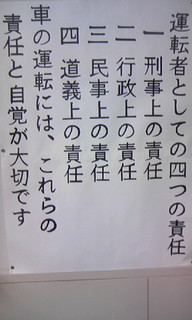 運転者としての四つの責任
一 刑事上の責任
二 行政上の責任
三 民事上の責任
四 道義上の責任
車の運転には、これらの
責任と自覚が大切です